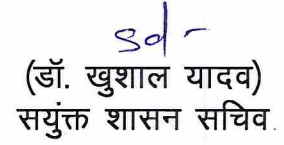 sd-
(डॉ. खुशाल यादव)
सयुंक्त शासन सचिव.